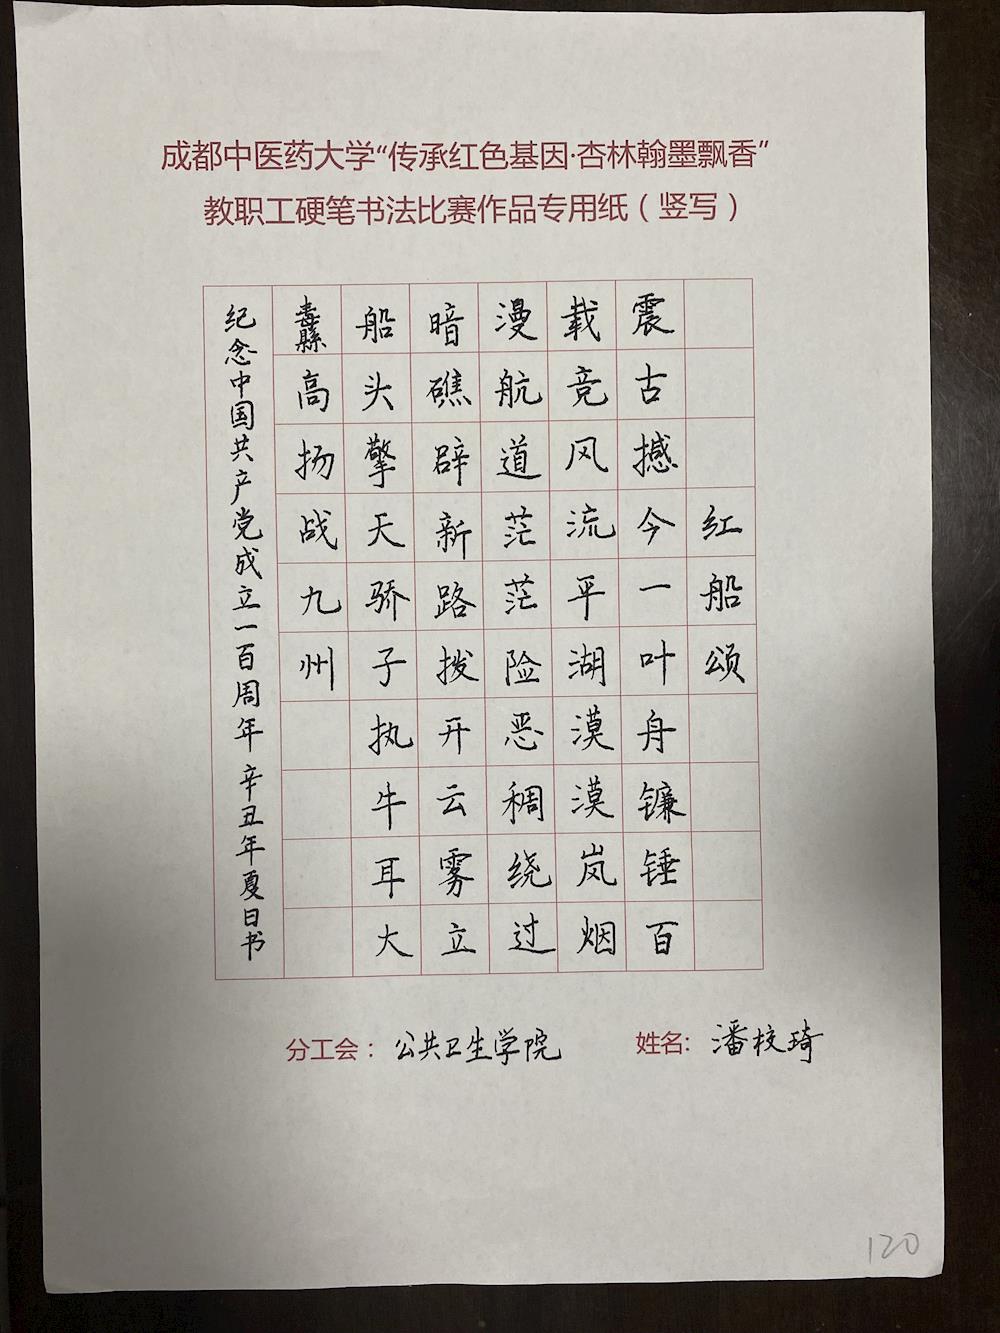 成都中医药大学“传承红色基因·杏林翰墨飘香”
教职工硬笔书法比赛作品专用纸（竖写）
红船颂
震古撼今一叶舟镰锤百
载竞风流平湖漠漠岚烟
漫航道茫茫险恶稠绕过
暗礁辟新路拨开云雾立
船头擎天骄子执牛耳大
纛高扬战九州
纪念中国共产党成立一百周年 辛丑年夏日书
分工会：公共卫生学院
姓名：潘校琦
120